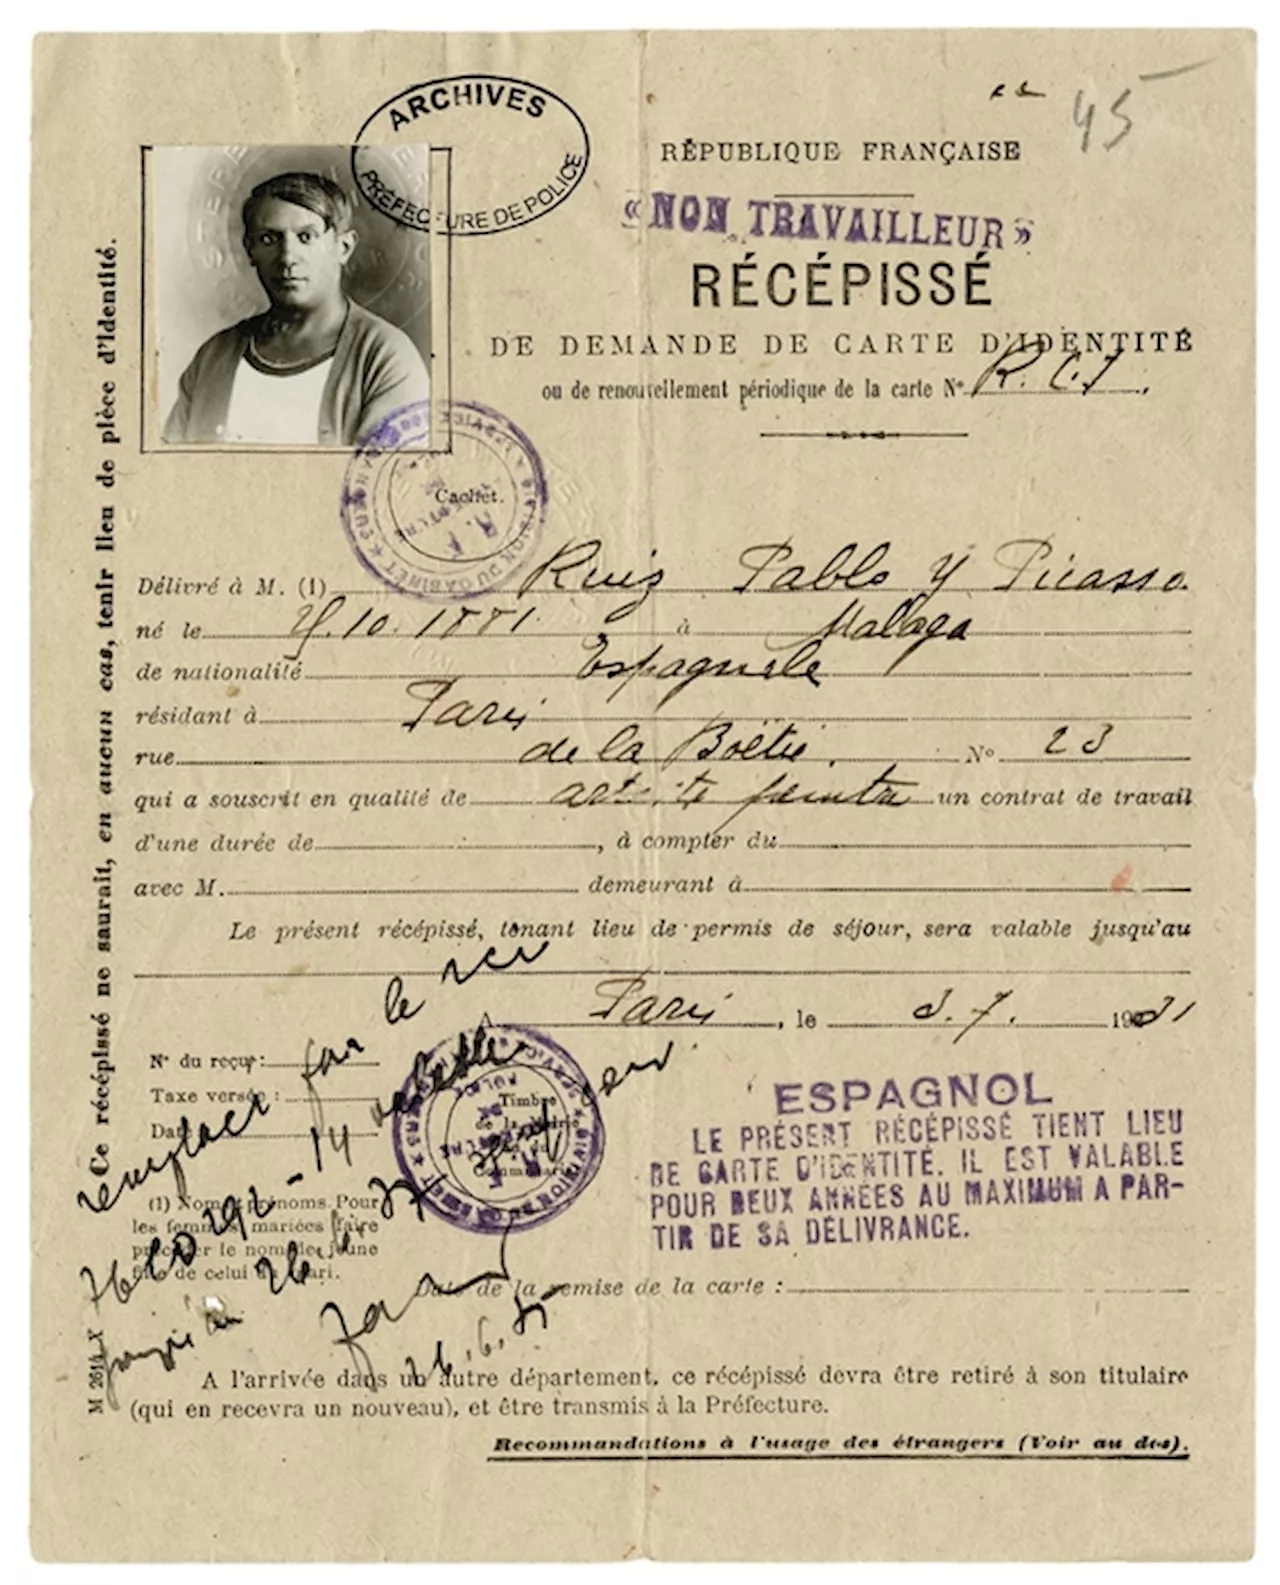 ARCHIVES
PRÉFECTURE DE POLICE
45
RÉPUBLIQUE FRANÇAISE
« NON TRAVAILLEUR »
RÉCÉPISSÉ
DE DEMANDE DE CARTE D'IDENTITÉ
ou de renouvellement périodique de la carte N° R.C.I.
Cachet.
Délivré à M. (1) Ruiz Pablo y Picasso
né le 25.10.1881 à Malaga
de nationalité Espagnole
résidant à Paris
rue de la Boëtie. N° 23
qui a souscrit en qualité de artiste peintre un contrat de travail
d'une durée de , à compter du
avec M. demeurant à
Le présent récépissé, tenant lieu de permis de séjour, sera valable jusqu'au
A Paris , le 3.7. 1931
N° du reçu:
Taxe versée :
Date
Timbre
de la Mairie
ou du
Commissariat
(1) Noms, prénoms. Pour
les femmes mariées faire
précéder le nom de jeune
fille de celui du mari.
remplacé par le rec
ESPAGNOL
LE PRÉSENT RÉCÉPISSÉ TIENT LIEU
DE CARTE D'IDENTITÉ. IL EST VALABLE
POUR DEUX ANNÉES AU MAXIMUM A PAR-
TIR DE SA DÉLIVRANCE.
Date de la remise de la carte :
26.6.35
A l'arrivée dans un autre département, ce récépissé devra être retiré à son titulaire
(qui en recevra un nouveau), et être transmis à la Préfecture.
Recommandations à l'usage des étrangers (Voir au dos).
Ce récépissé ne saurait, en aucun cas, tenir lieu de pièce d'identité.